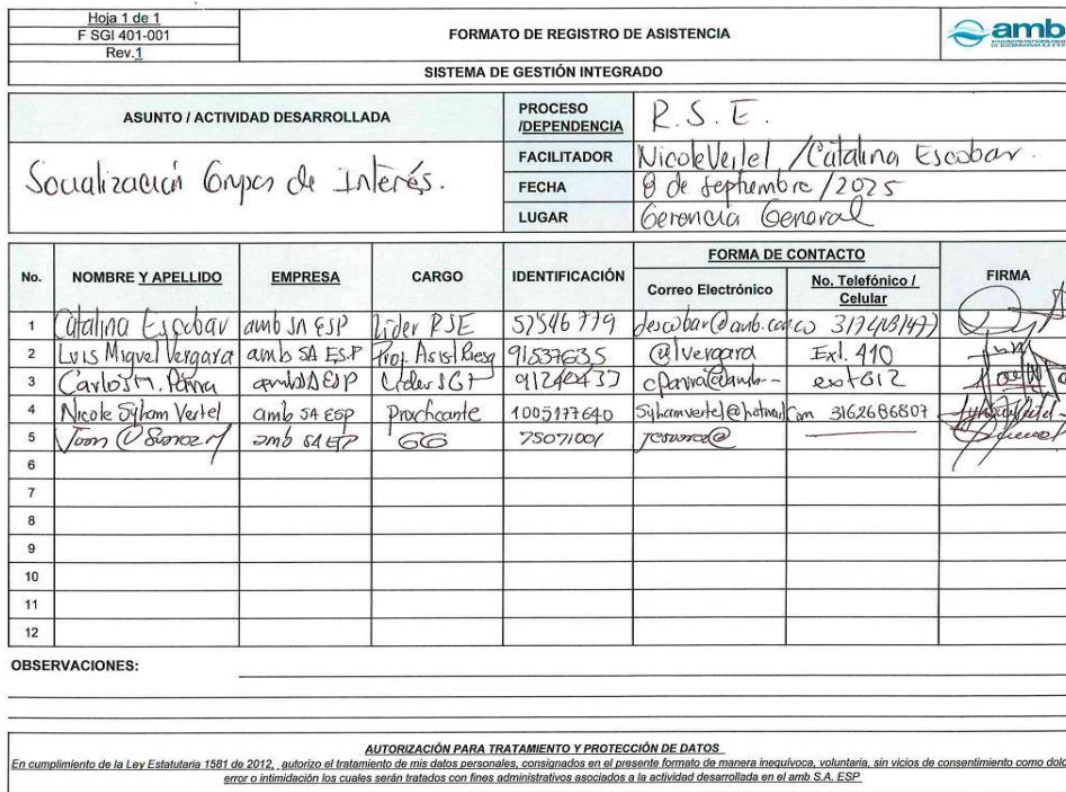 Hoja 1 de 1
F SGI 401-001
Rev.1
FORMATO DE REGISTRO DE ASISTENCIA
amb
SISTEMA DE GESTIÓN INTEGRADO
ASUNTO / ACTIVIDAD DESARROLLADA
PROCESO /DEPENDENCIA R.S.E.
Socialización Grupos de Interés.
FACILITADOR Nicole Vertel / Catalina Escobar.
FECHA 8 de septiembre / 2025
LUGAR Gerencia General
No. NOMBRE Y APELLIDO EMPRESA CARGO IDENTIFICACIÓN FORMA DE CONTACTO FIRMA
Correo Electrónico No. Telefónico / Celular
1 Catalina Escobar amb SA ESP Líder RSE 52546779
2 Luis Miguel Vergara amb SA ESP Prof. Asist Riesg 91537635 @lvergara Ext. 410
3 Carlos M. Parra amb SA ESP Líder SGI cparra@amb-- ext 612
4 Nicole Syham Vertel amb SA ESP Practicante 1005177640 Syhamvertel@hotmail.com 3162686807
5 amb SA ESP GG 75071001
6
7
8
9
10
11
12
OBSERVACIONES:
AUTORIZACIÓN PARA TRATAMIENTO Y PROTECCIÓN DE DATOS
En cumplimiento de la Ley Estatutaria 1581 de 2012, autorizo el tratamiento de mis datos personales, consignados en el presente formato de manera inequívoca, voluntaria, sin vicios de consentimiento como dolo,
error o intimidación los cuales serán tratados con fines administrativos asociados a la actividad desarrollada en el amb S.A. ESP